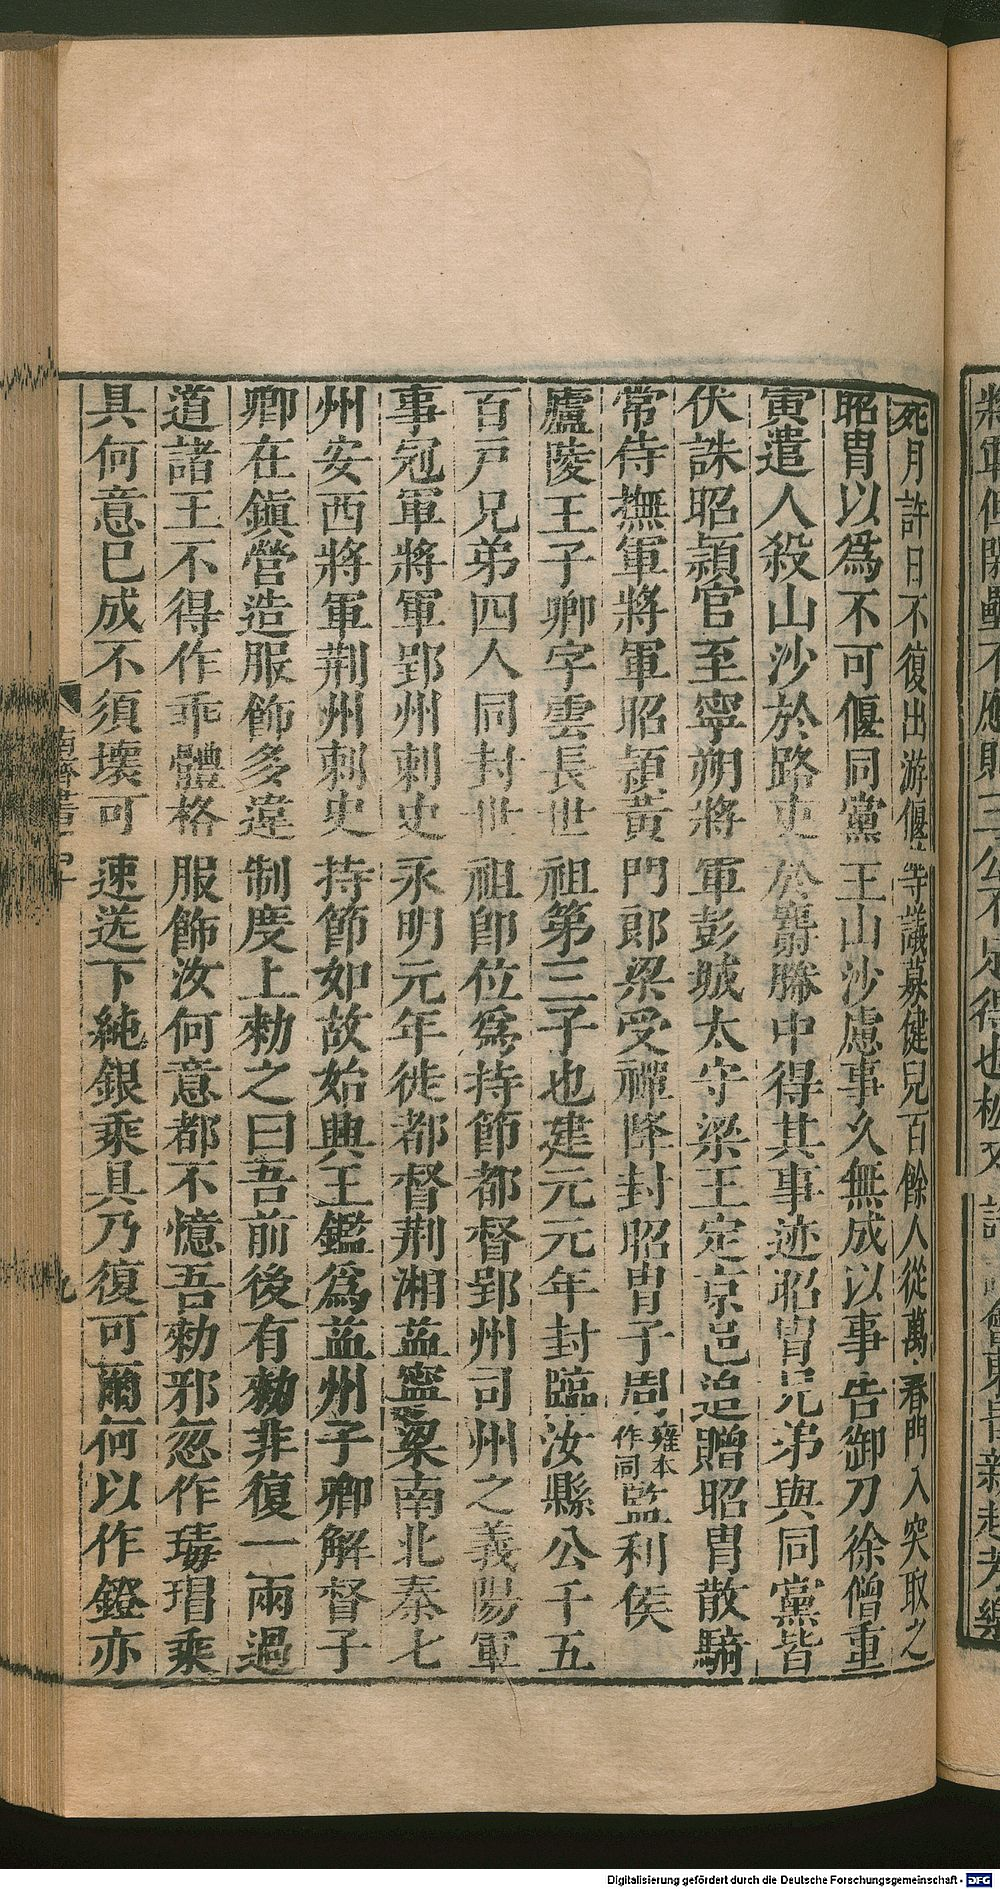 死月許日不復出游偃等議募健兒百餘人從萬春門入突取之
昭胄以爲不可偃同黨王山沙慮事久無成以事告御刀徐僧重
寅遣人殺山沙於路吏於麝幐中得其事迹昭胄兄弟與同黨皆
伏誅昭頴官至寧朔將軍彭城太守梁王定京邑追贈昭胄散騎
常侍撫軍將軍昭頴黄門郎梁受禪降封昭胄子周雍本作同監利侯
廬陵王子卿字雲長世祖第三子也建元元年封臨汝縣公千五
百戸兄弟四人同封世祖卽位爲持節都督郢州司州之義陽軍
事冠軍將軍郢州刺史永明元年徙都督荆湘益寧梁南北秦七
州安西將軍荆州刺史持節如故始興王鑑爲益州子卿解督子
卿在鎭營造服飾多違制度上勑之曰吾前後有勑非復一兩過
道諸王不得作乖體格服飾汝何意都不憶吾勑邪忽作瑇瑁乘
具何意已成不須壞可速送下純銀乘具乃復可爾何以作鐙亦
南齊書 四十
九
Digitalisierung gefördert durch die Deutsche Forschungsgemeinschaft - DFG